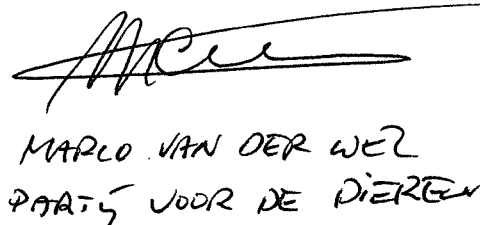 MARCO VAN DER WEL
PARTIJ VOOR DE DIEREN